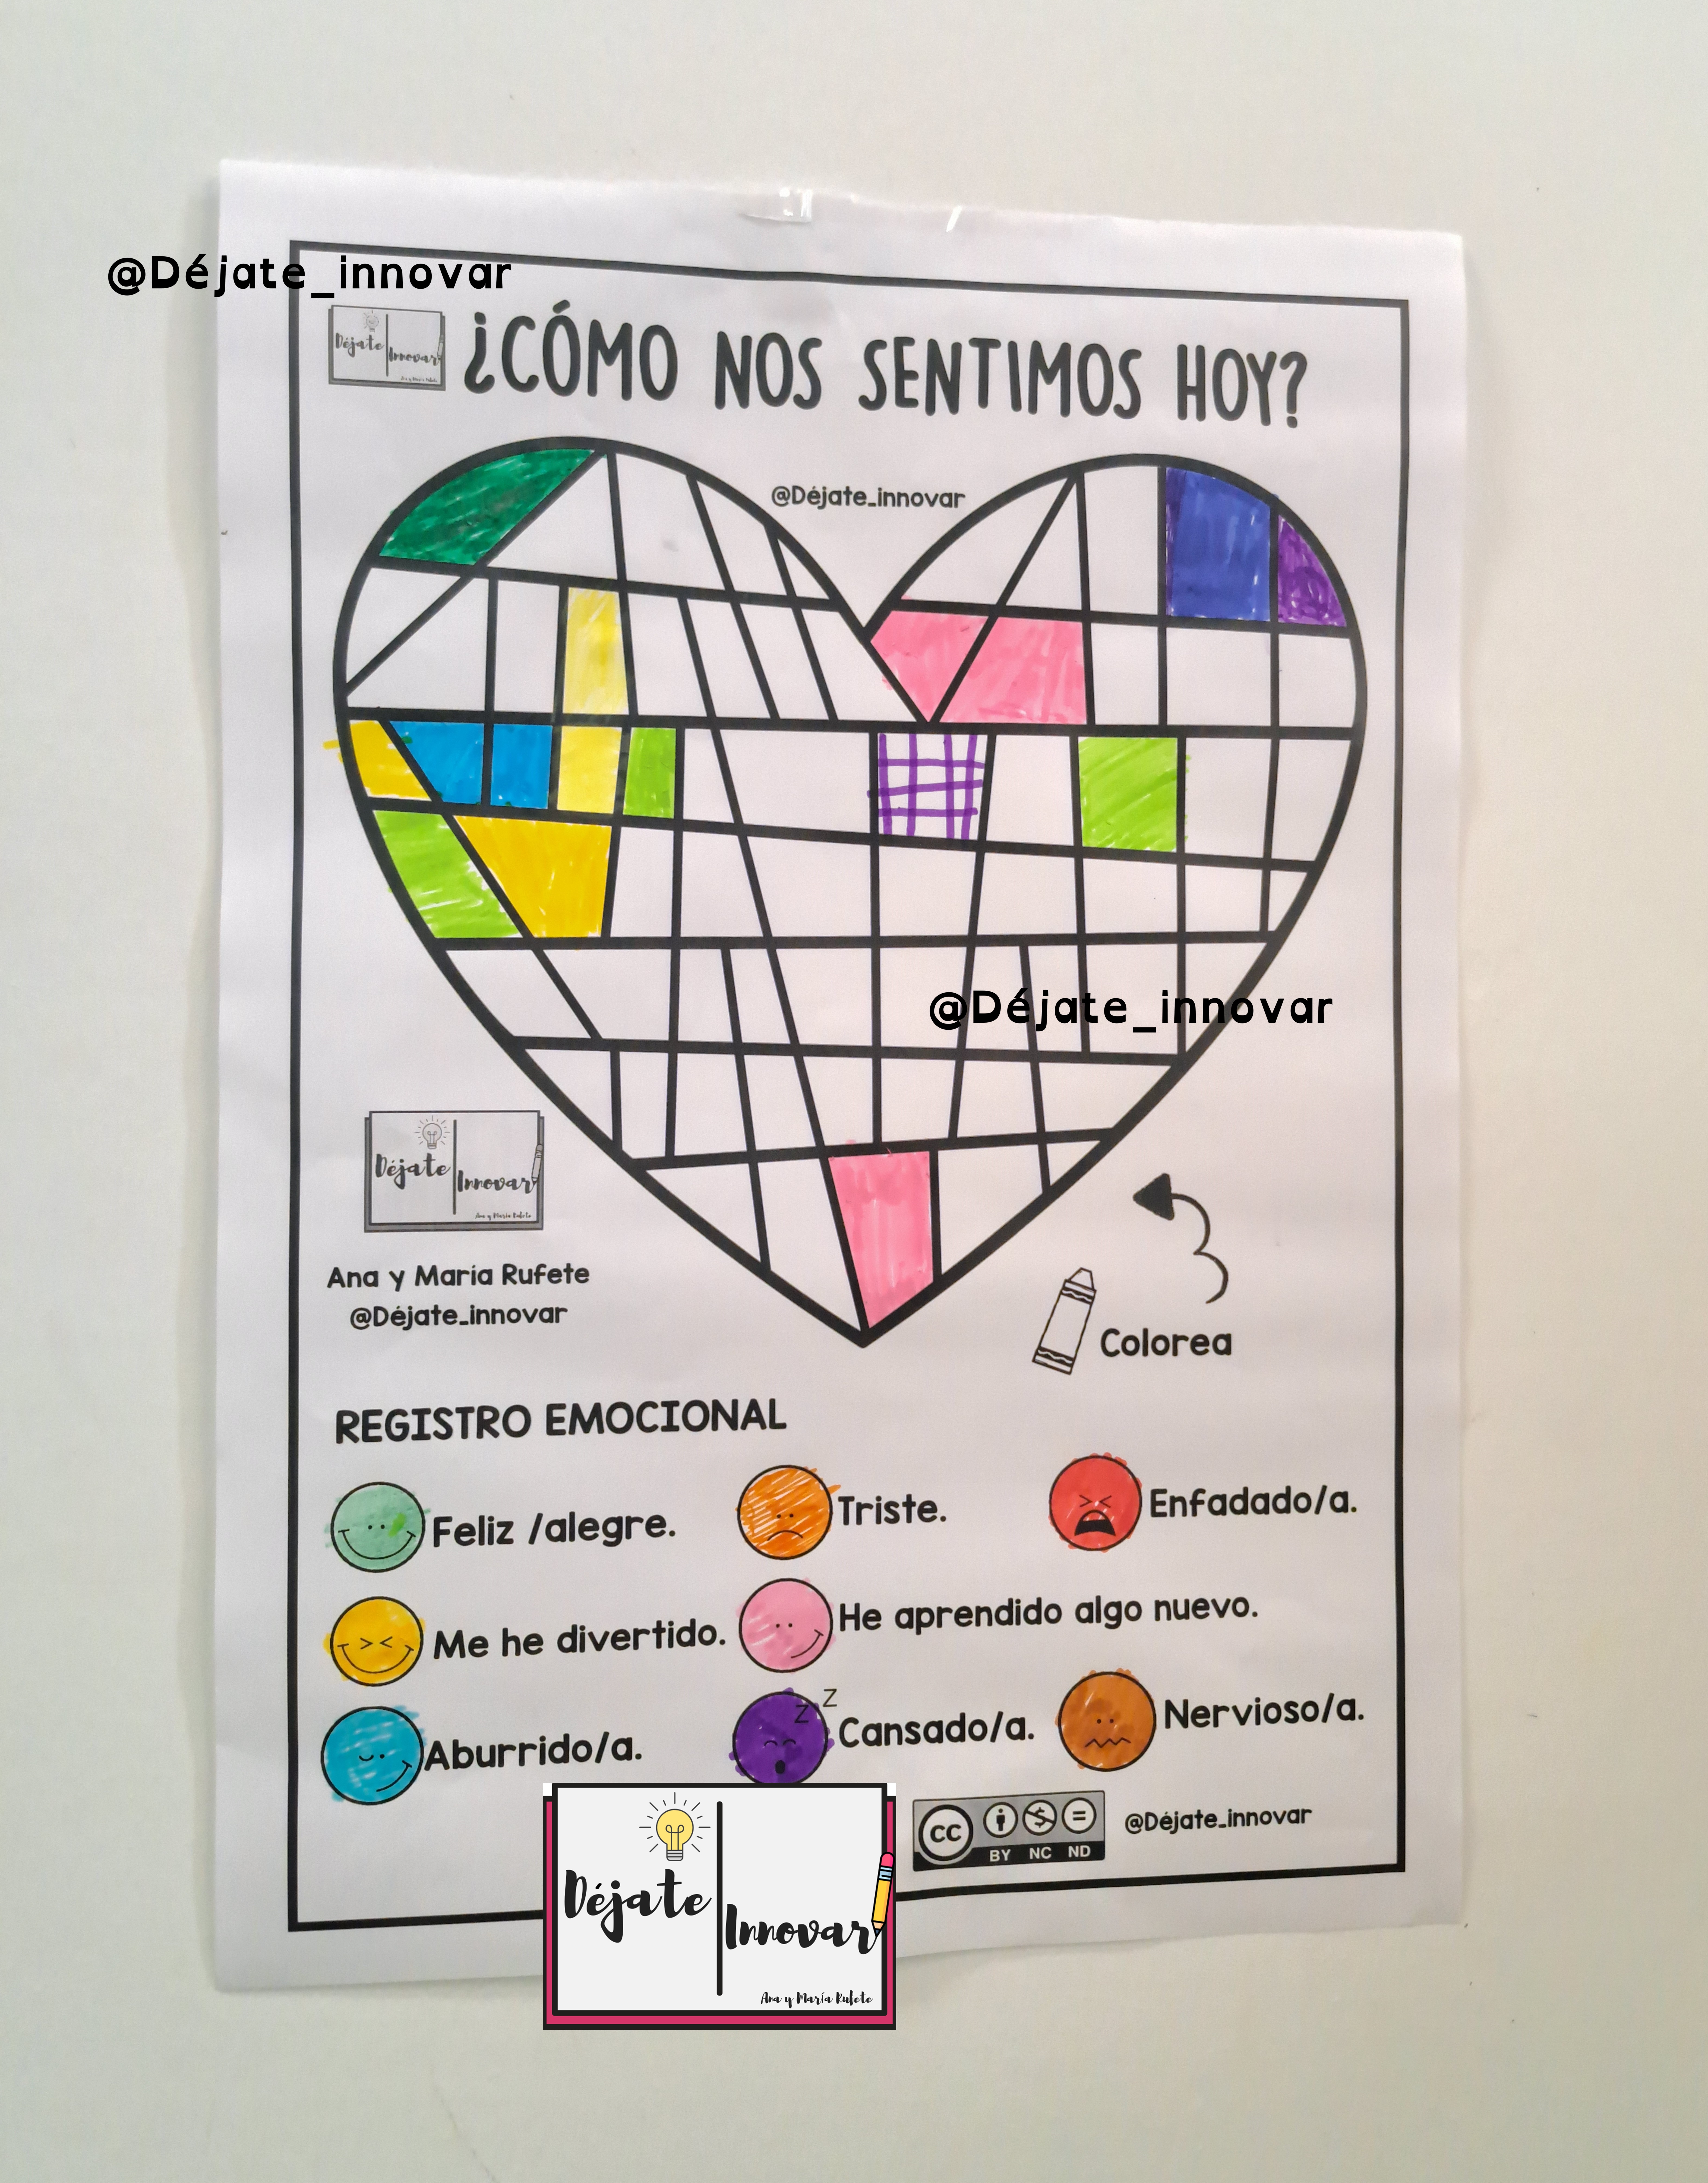 @Déjate_innovar
Déjate Innovar
¿CÓMO NOS SENTIMOS HOY?
@Déjate_innovar
@Déjate_innovar
Déjate Innovar
Ana y María Rufete
Ana y María Rufete
@Déjate_innovar
Colorea
REGISTRO EMOCIONAL
Feliz /alegre.
Triste.
Enfadado/a.
Me he divertido.
He aprendido algo nuevo.
Aburrido/a.
Z Z
Cansado/a.
Nervioso/a.
CC BY NC ND
@Déjate_innovar
Déjate Innovar
Ana y María Rufete